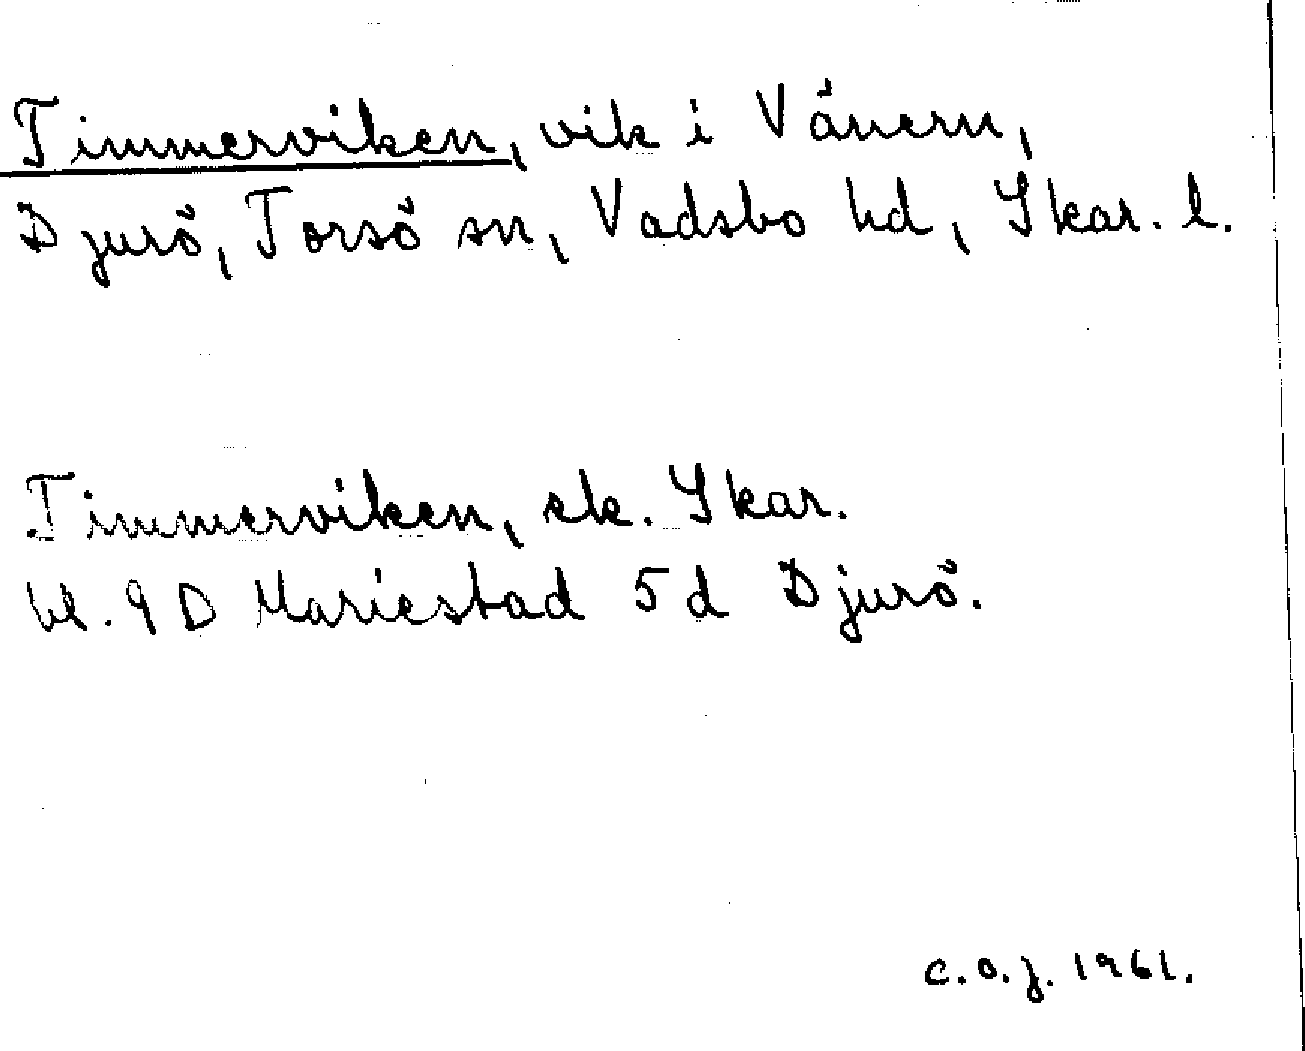 Timmerviken, vik i Vänern,
Djurö, Torsö sn, Vadsbo hd, Skar. l.
Timmerviken, ek. Skar.
bl. 9 D Mariestad 5d Djurö.
C.O.J. 1961.